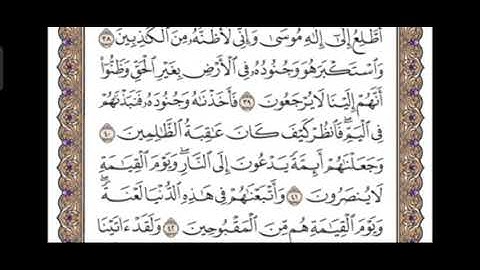 أَطَّلِعُ إِلَىٰٓ إِلَٰهِ مُوسَىٰ وَإِنِّي لَأَظُنُّهُۥ مِنَ ٱلۡكَٰذِبِينَ ٣٨
وَٱسۡتَكۡبَرَ هُوَ وَجُنُودُهُۥ فِي ٱلۡأَرۡضِ بِغَيۡرِ ٱلۡحَقِّ وَظَنُّوٓاْ
أَنَّهُمۡ إِلَيۡنَا لَا يُرۡجَعُونَ ٣٩ فَأَخَذۡنَٰهُ وَجُنُودَهُۥ فَنَبَذۡنَٰهُمۡ
فِي ٱلۡيَمِّۖ فَٱنظُرۡ كَيۡفَ كَانَ عَٰقِبَةُ ٱلظَّٰلِمِينَ ٤٠
وَجَعَلۡنَٰهُمۡ أَئِمَّةٗ يَدۡعُونَ إِلَى ٱلنَّارِۖ وَيَوۡمَ ٱلۡقِيَٰمَةِ
لَا يُنصَرُونَ ٤١ وَأَتۡبَعۡنَٰهُمۡ فِي هَٰذِهِ ٱلدُّنۡيَا لَعۡنَةٗۖ
وَيَوۡمَ ٱلۡقِيَٰمَةِ هُم مِّنَ ٱلۡمَقۡبُوحِينَ ٤٢ وَلَقَدۡ ءَاتَيۡنَا